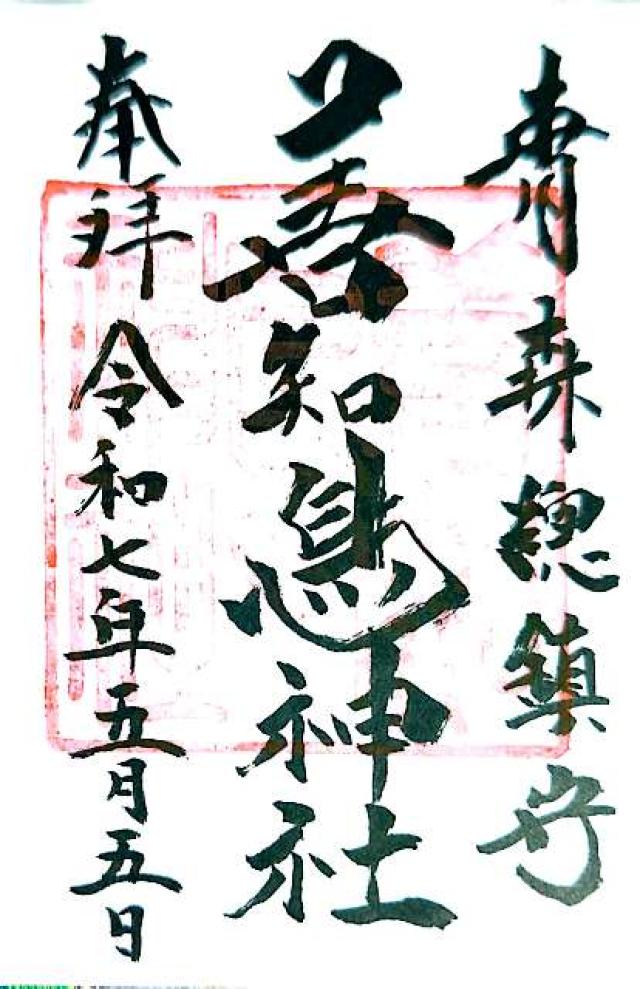 青森總鎮守
善知鳥神社
奉拝 令和七年五月五日